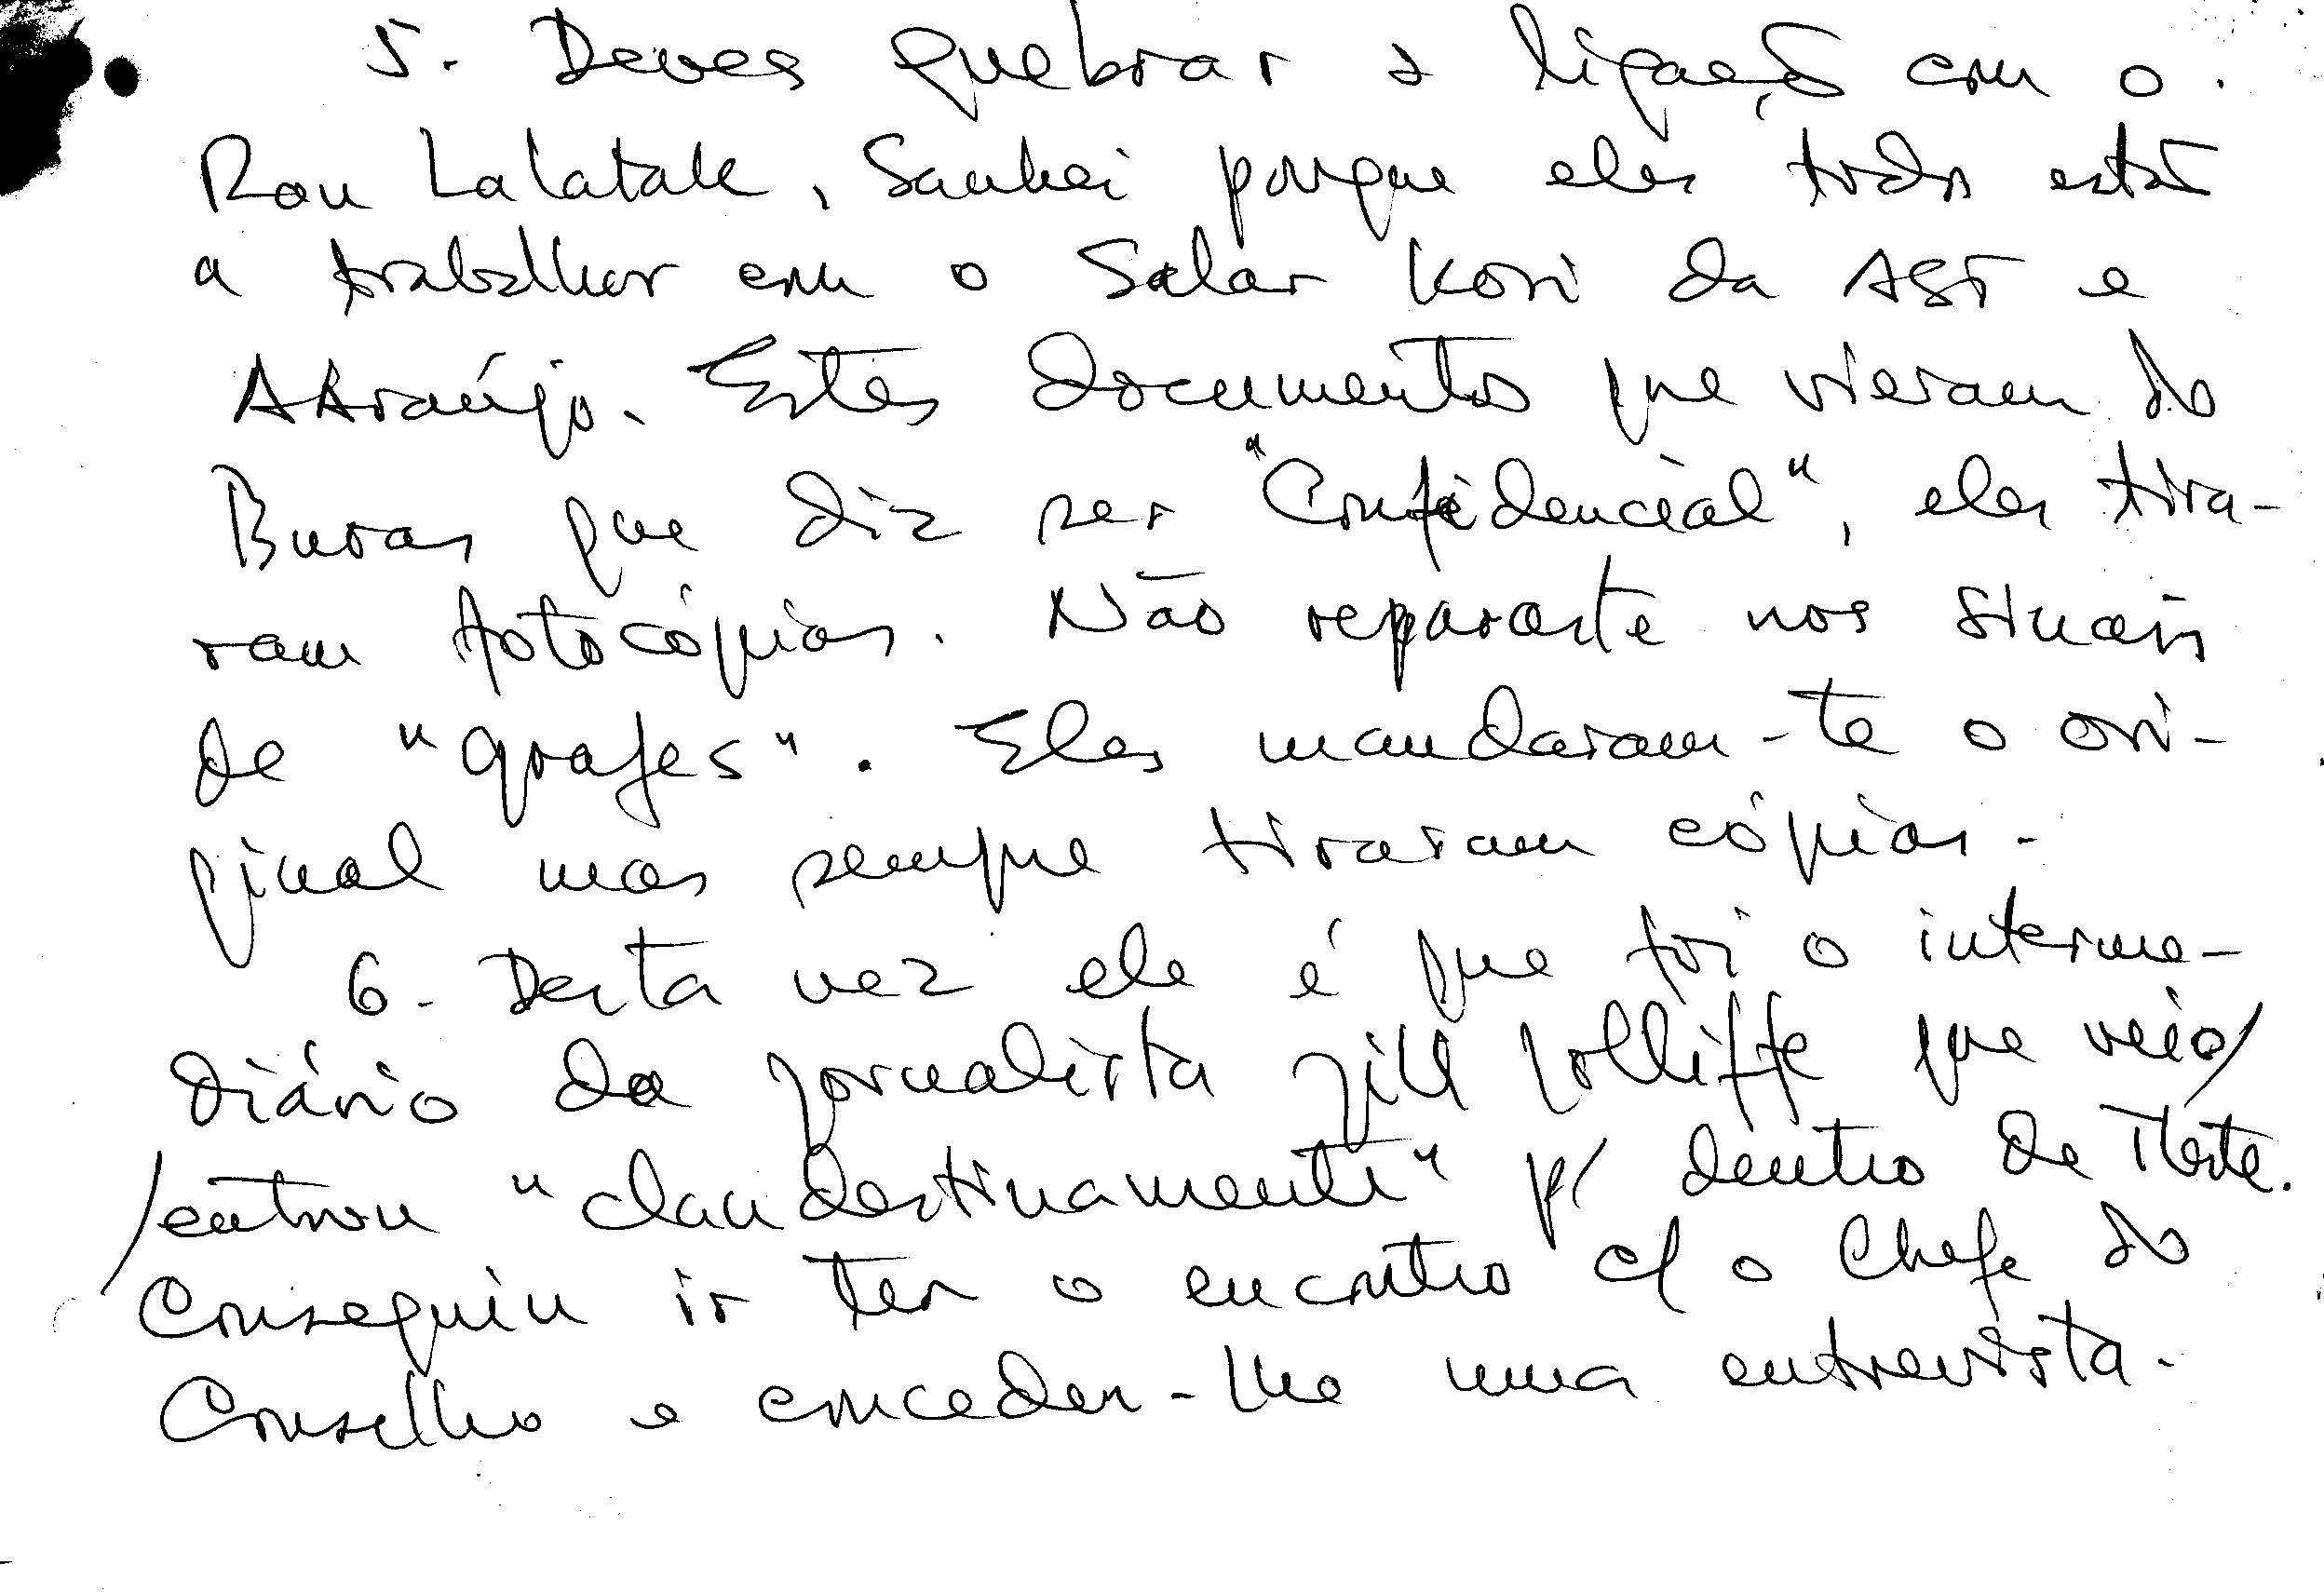 5. Deves quebrar a ligação com o
Rou Lalatak, Sankei porque eles todos estão
a trabalhar com o Salar Kosi da AST e
AAraújo. Estes documentos que vieram do
Buras que diz ser "Confidencial", eles tira-
ram fotocópias. Não reparaste nos sinais
de "grafes". Eles mandaram-te o ori-
ginal mas sempre tiraram cópias.
6. Desta vez ele é que foi o interme-
diário da jornalista Jill Jolliffe que veio/
/entrou "clandestinamente" p/ dentro de TLeste.
Conseguiu ir ter o encontro c/ o Chefe do
Conselho e conceder-lhe uma entrevista.